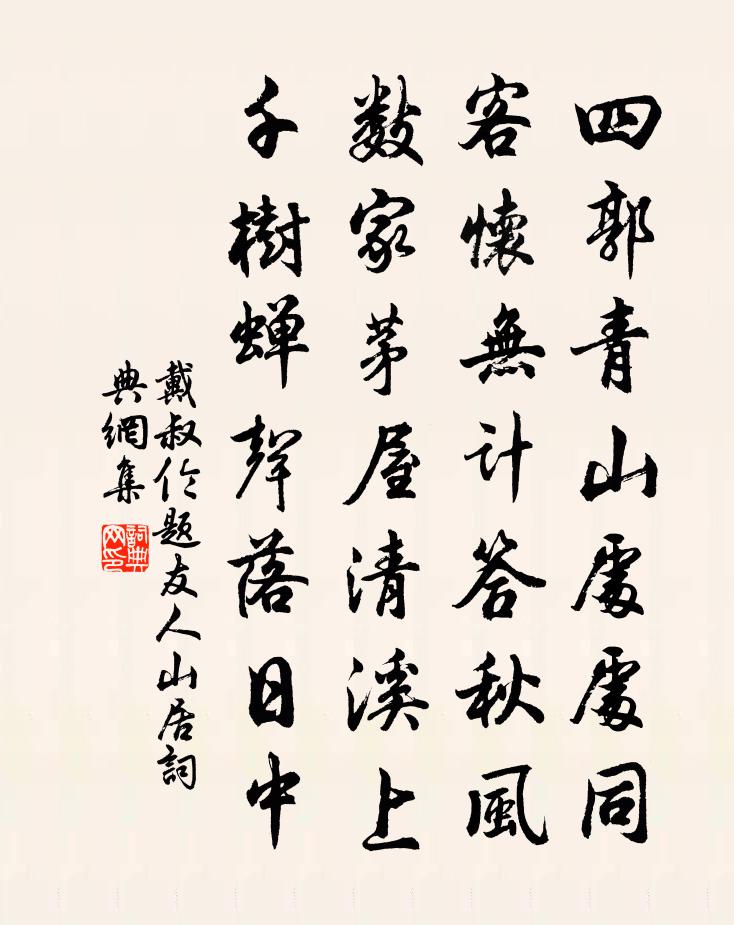 四郭青山處處同
客懷無計答秋風
數家茅屋清溪上
千樹蟬聲落日中
戴叔伦题友人山居詞
典網集
詞典
网印